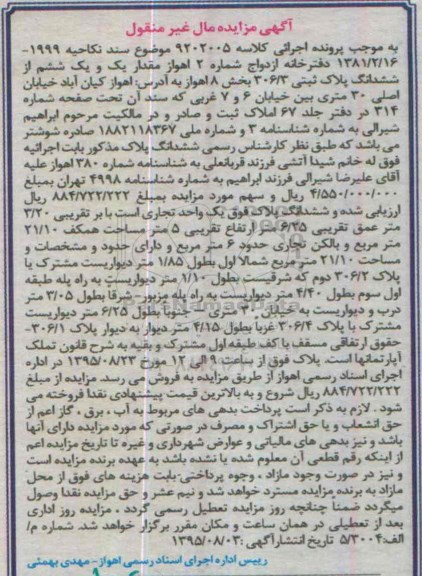 آگهی مزایده مال غیر منقول
به موجب پرونده اجرائی کلاسه ۹۲۰۲۰۰۵ موضوع سند نکاحیه ۱۹۹۹-
۱۳۸۱/۲/۱۶ دفترخانه ازدواج شماره ۲ اهواز مقدار یک و یک ششم از
ششدانگ پلاک ثبتی ۳۰۶/۳ بخش ۸ اهواز به آدرس: اهواز کیان آباد خیابان
اصلی ۳۰ متری بین خیابان ۶ و ۷ غربی که سند آن تحت صفحه شماره
۳۱۴ در دفتر جلد ۶۷ املاک ثبت و صادر و در مالکیت مرحوم ابراهیم
شیرالی به شماره شناسنامه ۳ و شماره ملی ۱۸۸۲۱۱۸۳۶۷ صادره شوشتر
می باشد که طبق نظر کارشناس رسمی ششدانگ پلاک مذکور بابت اجرائیه
فوق له خانم شیدا آتشی فرزند قربانعلی به شناسنامه شماره ۳۸۰ اهواز علیه
آقای علیرضا شیرالی فرزند ابراهیم به شماره شناسنامه ۴۹۹۸ تهران بمبلغ
۴/۵۵۰/۰۰۰/۰۰۰ ریال و سهم مورد مزایده بمبلغ ۸۸۴/۷۲۲/۲۲۲ ریال
ارزیابی شده و ششدانگ پلاک فوق یک واحد تجاری است با بر تقریبی ۳/۲۰
متر عمق تقریبی ۶/۳۵ متر ارتفاع تقریبی ۵ متر مساحت همکف ۲۱/۱۰
متر مربع و بالکن تجاری حدود ۶ متر مربع و دارای حدود و مشخصات و
مساحت ۲۱/۱۰ متر مربع شمالا اول بطول ۱/۸۵ متر دیواریست مشترک با
پلاک ۳۰۶/۲ دوم که شرقیست بطول ۱/۱۰ متر دیواریست به راه پله طبقه
اول سوم بطول ۴/۴۰ متر دیواریست به راه پله مزبور- شرقا بطول ۳/۰۵ متر
درب و دیواریست به خیابان ۳۰ متری - جنوبا بطول ۶/۲۵ متر دیواریست
مشترک با پلاک ۳۰۶/۴ غربا بطول ۴/۱۵ متر دیوار به دیوار پلاک ۳۰۶/۱-
حقوق ارتفاقی مسقف با کف طبقه اول مشترک و بقیه به شرح قانون تملک
آپارتمانها است. پلاک فوق از ساعت ۹ الی ۱۲ مورخ ۱۳۹۵/۰۸/۲۳ در اداره
اجرای اسناد رسمی اهواز از طریق مزایده به فروش می رسد. مزایده از مبلغ
۸۸۴/۷۲۲/۲۲۲ ریال شروع و به بالاترین قیمت پیشنهادی نقدا فروخته می
شود . لازم به ذکر است پرداخت بدهی های مربوط به آب ، برق ، گاز اعم از
حق انشعاب و یا حق اشتراک و مصرف در صورتی که مورد مزایده دارای آنها
باشد و نیز بدهی های مالیاتی و عوارض شهرداری و غیره تا تاریخ مزایده اعم
از اینکه رقم قطعی آن معلوم شده یا نشده باشد به عهده برنده مزایده است
و نیز در صورت وجود مازاد ، وجوه پرداختی بابت هزینه های فوق از محل
مازاد به برنده مزایده مسترد خواهد شد و نیم عشر و حق مزایده نقدا وصول
میگردد ضمنا چنانچه روز مزایده تعطیل رسمی گردد ، مزایده روز اداری
بعد از تعطیلی در همان ساعت و مکان مقرر برگزار خواهد شد. شماره م/
الف:۵/۳۰۰۴ تاریخ انتشارآگهی :۱۳۹۵/۰۸/۰۳
رییس اداره اجرای اسناد رسمی اهواز- مهدی بهمئی